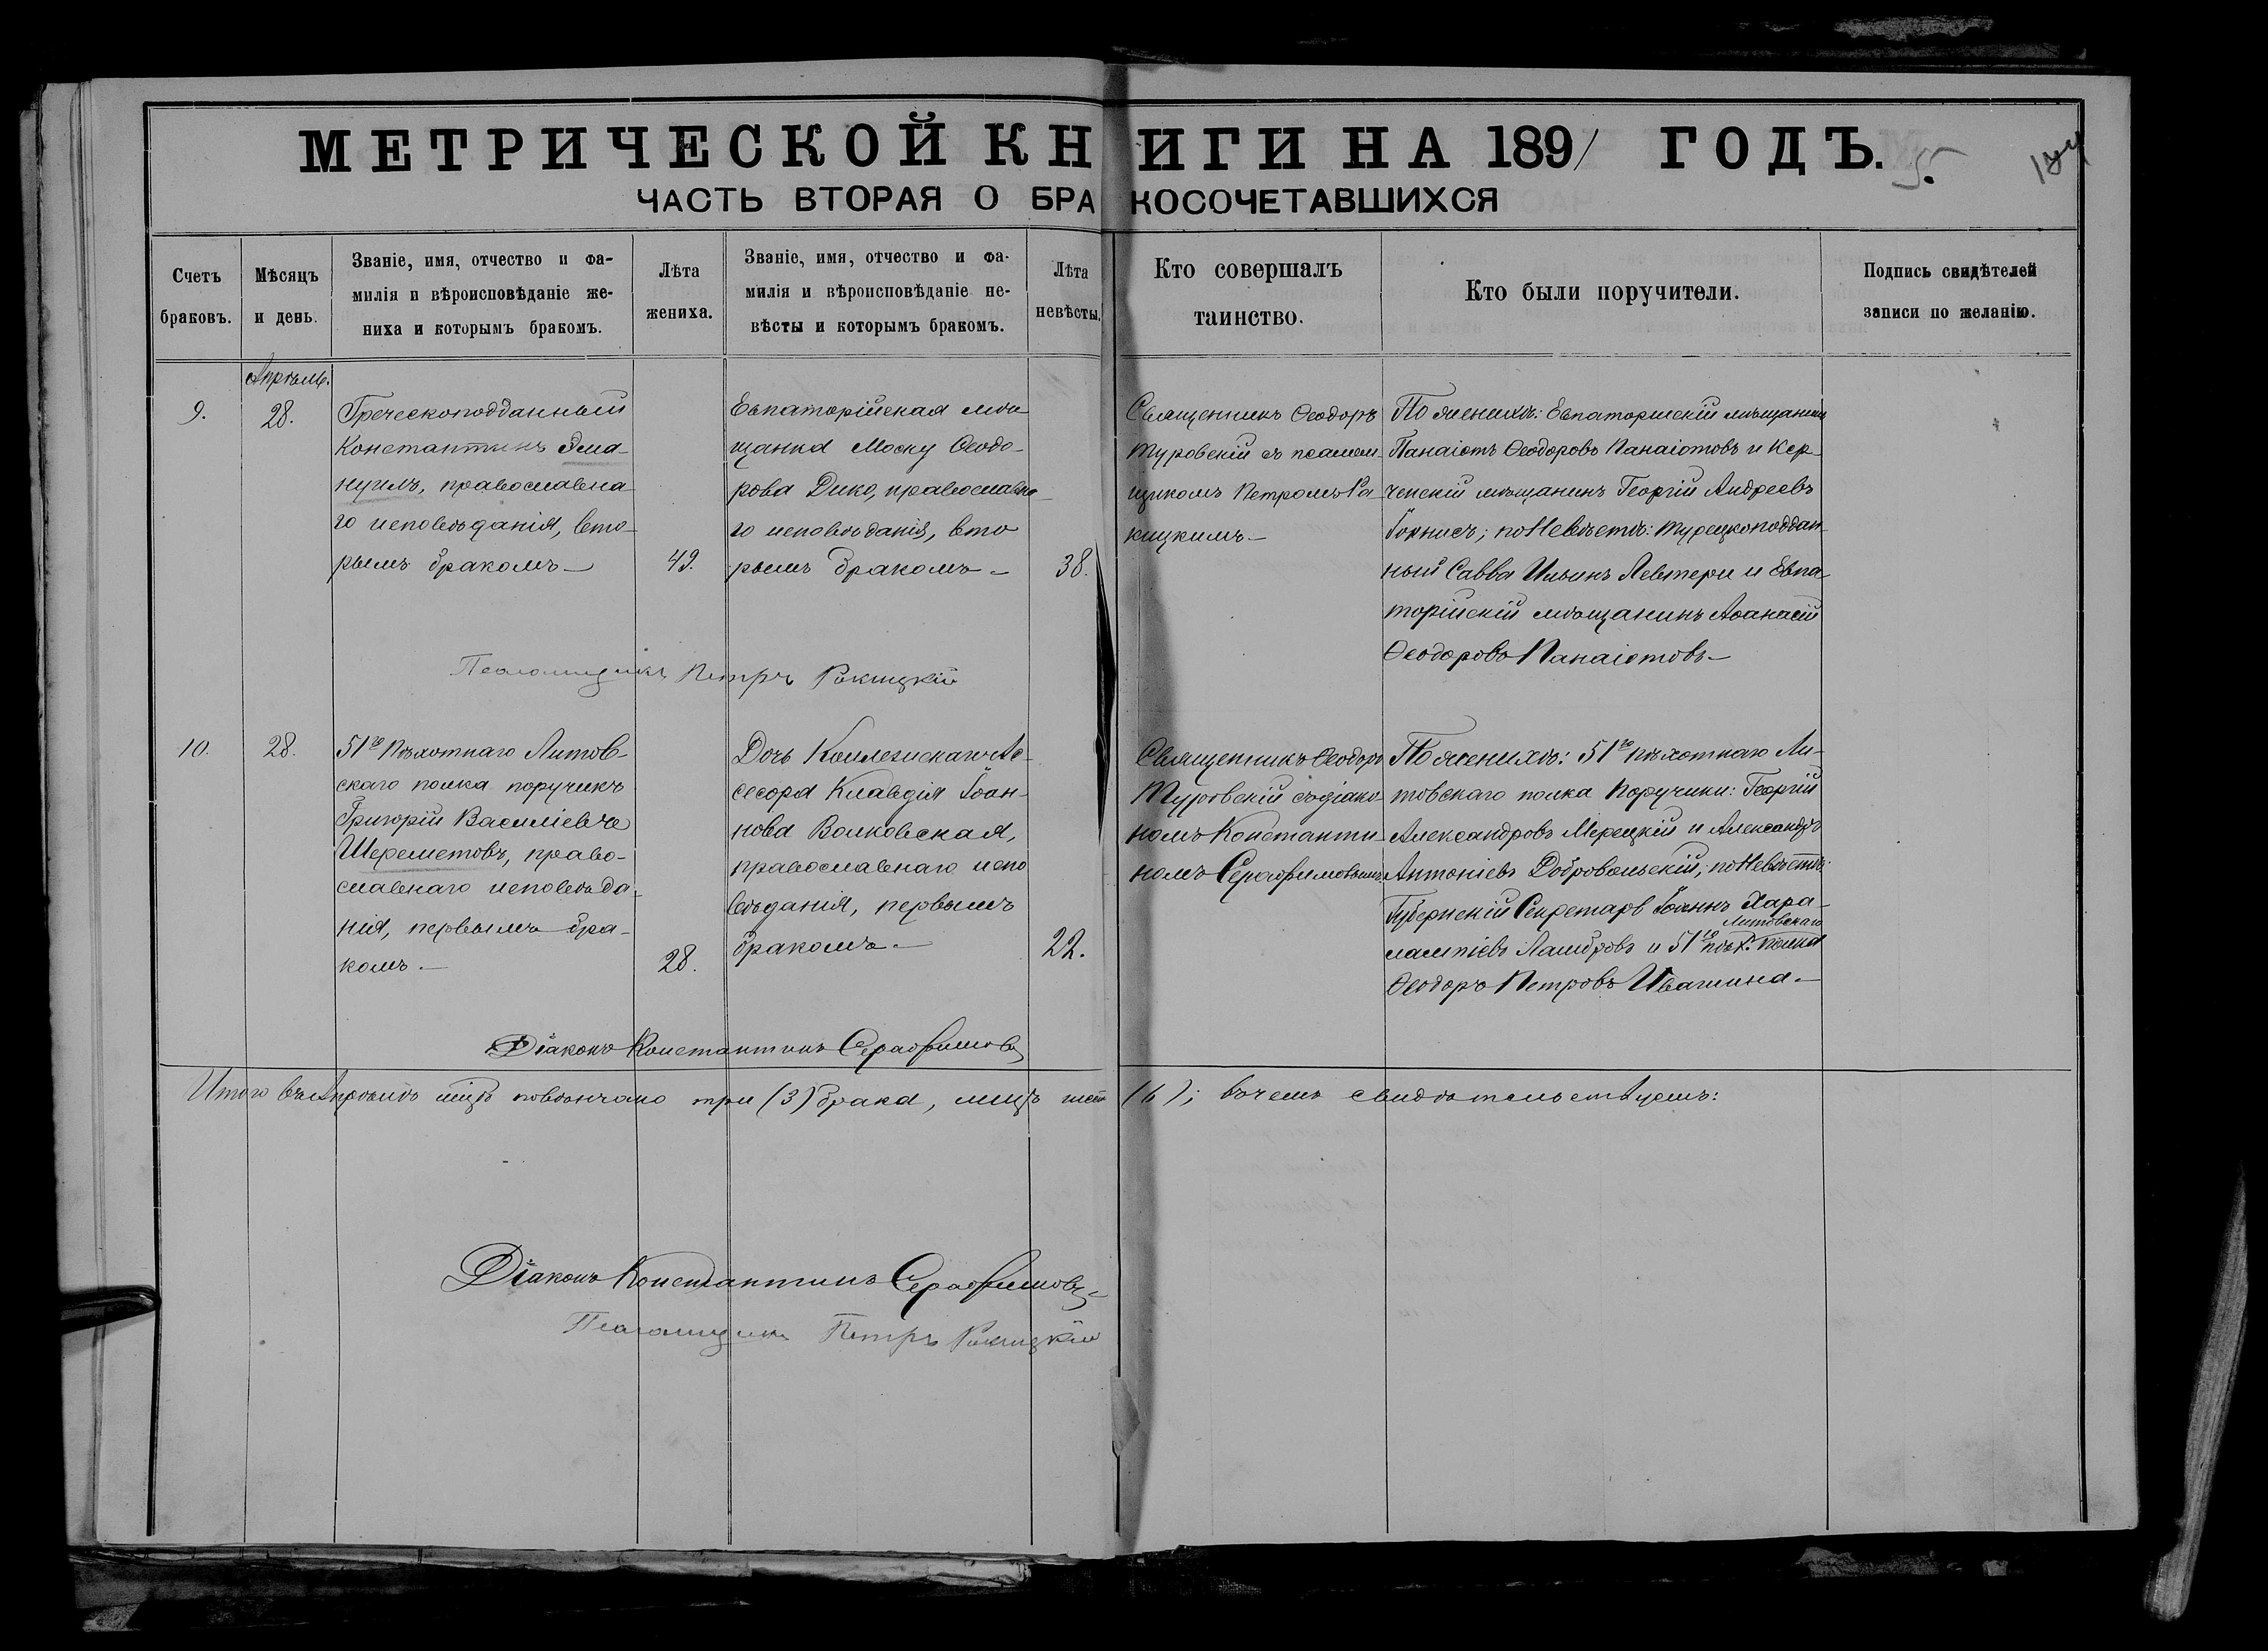 МЕТРИЧЕСКОЙ КНИГИ НА 1891 ГОДЪ.
5.
ЧАСТЬ ВТОРАЯ О БРАКОСОЧЕТАВШИХСЯ
Счетъ
браковъ.
Мѣсяцъ
и день.
Званіе, имя, отчество и фа-
милія и вѣроисповѣданіе же-
ниха и которымъ бракомъ.
Лѣта
жениха.
Званіе, имя, отчество и фа-
милія и вѣроисповѣданіе не-
вѣсты и которымъ бракомъ.
Лѣта
невѣсты.
Кто совершалъ
таинство.
Кто были поручители.
Подпись свидѣтелей
записи по желанію.
Апрѣль.
9.
28.
Греческоподданный
Константинъ Эма-
нуилъ, православна
го исповѣданія, вто-
рымъ бракомъ
49.
Евпаторійская мѣ
щанка Моску Ѳеодо-
рова Дико, православна
го исповѣданія, вто
рымъ бракомъ
38.
Священникъ Ѳеодоръ
Туровскій съ псалом-
щикомъ Петромъ Ра
кицкимъ
По женихѣ: Евпаторійскій мѣщанинъ
Панаіотъ Ѳеодоровъ Панаіотовъ и Кер-
ченскій мѣщанинъ Георгій Андреевъ
по невѣстѣ: Турецкоподдан-
ный Савва Ильинъ Левтери и Евпа-
торійскій мѣщанинъ Аѳанасій
Ѳеодоровъ Панаіотовъ
Псаломщикъ Петръ Ракицкій
10.
28.
51го Пѣхотнаго Литов-
скаго полка поручикъ
Григорій Василіевъ
Шереметовъ, право-
славнаго исповѣда-
нія, первымъ бра-
комъ.
28.
Дочь Коллежскаго Ас-
сесора Клавдія Іоан-
нова Волковская,
православнаго испо
вѣданія, первымъ
бракомъ.
22.
Священникъ Ѳеодоръ
Туровскій съ діако-
номъ Константи-
номъ Серафимовымъ.
По женихѣ: 51го пѣхотнаго Ли-
товскаго полка Поручики: Георгій
Александровъ Мерецкій и Александръ
Антоніевъ Добровольскій; по невѣстѣ:
Губернскій Секретарь Іоаннъ Хара-
лампіевъ Ламбровъ и 51го пѣх. Литовскаго полка
Ѳеодоръ Петровъ Ивашина
Діаконъ Константинъ Серафимовъ
Итого въ Апрѣлѣ мцѣ повѣнчано три (3) брака, лицъ шесть (6); въ чемъ свидѣтельствуемъ:
Діаконъ Константинъ Серафимовъ
Псаломщикъ Петръ Ракицкій